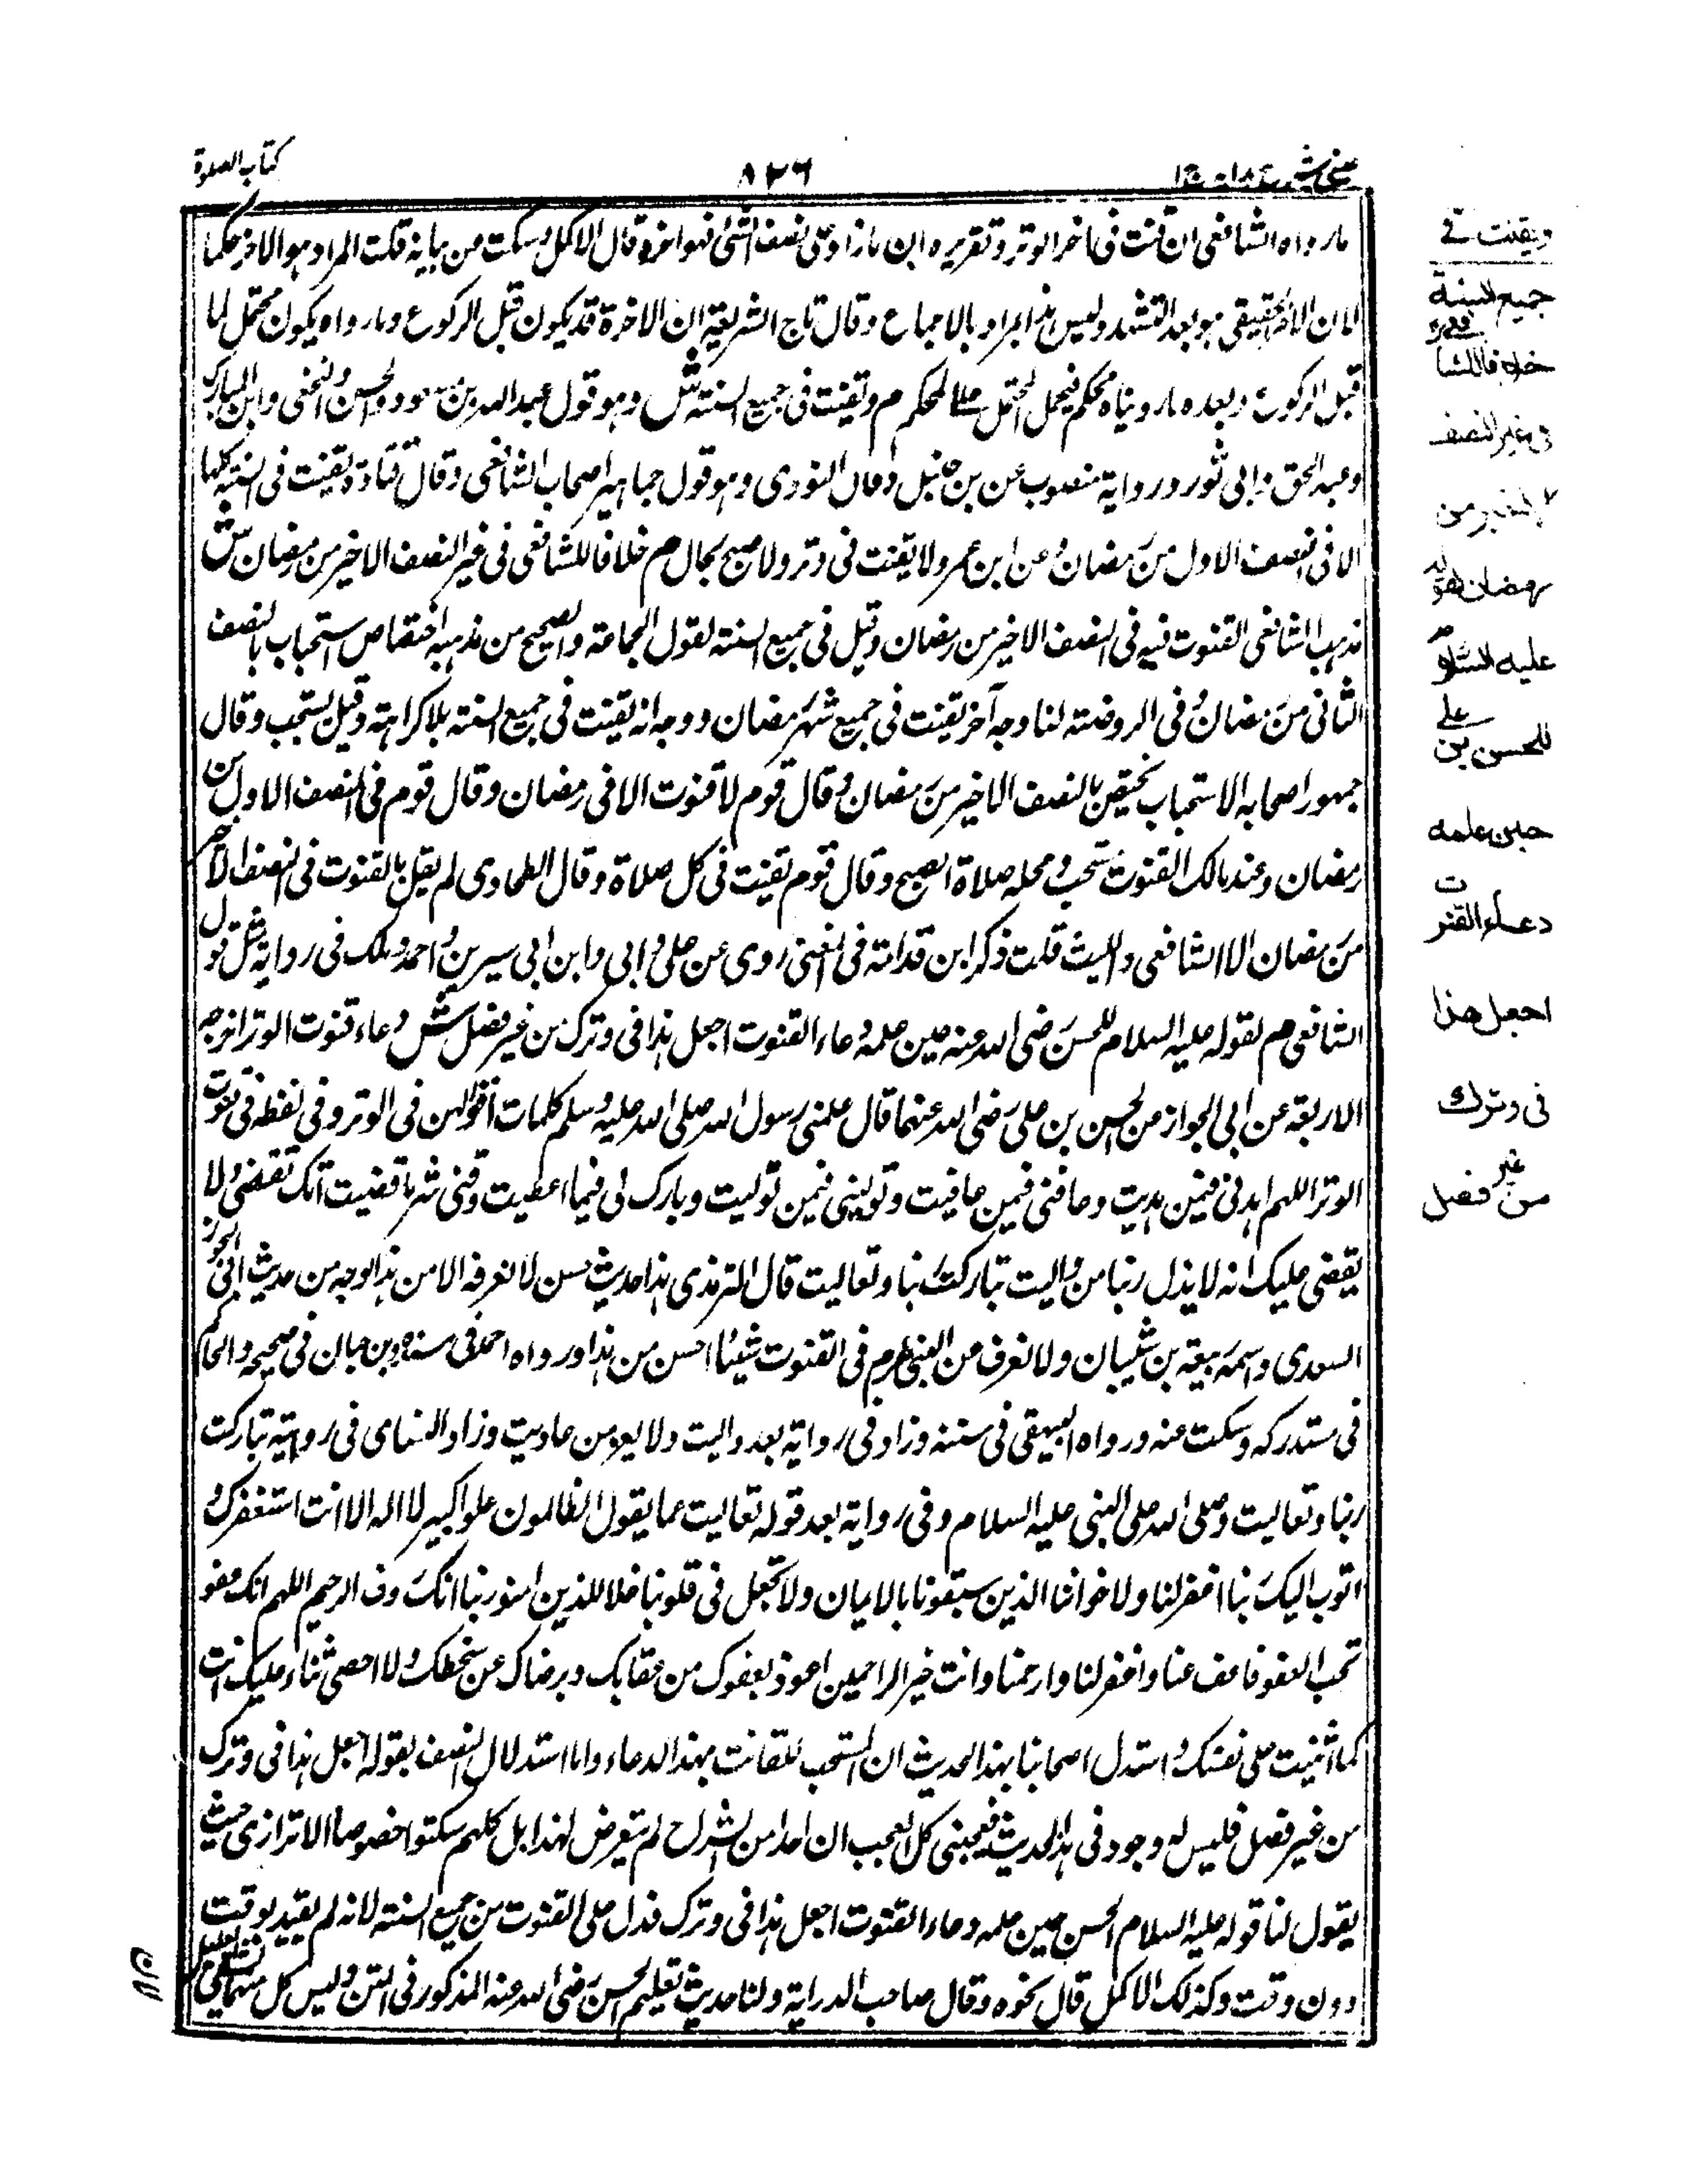 كتاب الصلوة
٨٢٦
عيني شرح هداية ج ١
ما رواه الشافعي ان قنت في اخر الوتر وتقريره ان ما زاد على نصف الشئ فهو اخره قال الاكمل وسكت من بيانه قلت المراد هو الاخر حكما
لان الاخر الحقيقي هو بعد التشهد وليس هذا المراد بالاجماع وقال تاج الشريعة ان الاخرة قد يكون قبل الركوع وما رواه يكون محتمل لما
قبل الركوع وبعده ما رويناه محكم فيحمل المحتمل على المحكم م ويقنت في جميع السنة ش وهو قول عبد الله بن مسعود والحسن والنخعي وابن المبارك
وعبد الحق وابي ثور ورواية منصوب عن بن حنبل وقال النووي وهو قول جماهير اصحاب الشافعي وقال قتادة يقنت في السنة كلها
الا في النصف الاول من رمضان وعن ابن عمر ولا يقنت في وتر ولا صبح بحال م خلافا للشافعي في غير النصف الاخير من رمضان ش
مذهب الشافعي القنوت فيه في النصف الاخير من رمضان وقيل في جميع السنة لقول الجماعة والصحيح من مذهبه اختصاص استحباب بالنصف
الثاني من رمضان وفي الروضة لنا وجه آخر يقنت في جميع شهر رمضان ووجه انه يقنت في جميع السنة بلا كراهة وقيل يستحب وقال
جمهور اصحابه الاستحباب يختص بالنصف الاخير من رمضان وقال قوم لا قنوت الا في رمضان وقال قوم في النصف الاول من
رمضان وعند مالك القنوت مستحب ومحله صلاة الصبح وقال قوم يقنت في كل صلاة وقال الطحاوى لم يقل بالقنوت في النصف الاخير
من رمضان الا الشافعي والليث قلت ذكر ابن قدامة في المغني روى عن على وابي وابن ابي سيرين واحمد ومالك في رواية مثل قول
الشافعي م لقوله عليه السلام للحسن رضى الله عنه حين علمه دعاء القنوت اجعل هذا في وترك من غير فصل ش دعاء قنوت الوتر اخرجه
الاربعة عن ابي الجواز من الحسن بن على رضى الله عنهما قال علمني رسول الله صلى الله عليه وسلم كلمات اقولهن في الوتر وفي لفظه في قنوت
الوتر اللهم اهدنى فيمن هديت وعافنى فيمن عافيت وتولني فيمن توليت وبارك لى فيما اعطيت وقني شر ما قضيت انك تقضى ولا
يقضى عليك انه لا يذل ربنا من واليت تباركت ربنا وتعاليت قال الترمذى هذا حديث حسن لا نعرفه الا من هذا الوجه من حديث ابي الجوز
السعدى واسمه ربيعة بن شيبان ولا نعرف من النبي م في القنوت شيئا احسن من هذا ورواه احمد في سنده وبن حبان في صحيحه والحاكم
في مستدركه وسكت عنه ورواه البيهقى في سننه وزاد في رواية بعد واليت ولا يعز من عاديت وزاد النسائى في رواية تباركت
ربنا وتعاليت وصلى الله على النبي عليه السلام وفي رواية بعد قوله تعاليت عما يقول الظالمون علوا كبير لا اله الا انت استغفرك و
اتوب اليك ربنا اغفر لنا ولاخواننا الذين سبقونا بالايمان ولا تجعل في قلوبنا غلا للذين امنو ربنا انك روف الرحيم اللهم انك عفو
تحب العفو فاعف عنا واغفر لنا وارحمنا وانت خير الراحمين اعوذ بعفوك من عقابك وبرضاك عن سخطك ولا احصى ثناء عليك انت
كما اثنيت على نفسك واستدل اصحابنا بهذا الحديث ان المستحب للقانت بهذا الدعاء واما استدلال المصنف بقوله اجعل هذا في وترك
من غير فصل فليس له وجود في هذا الحديث فعجبنى كل العجب ان احدا من الشراح لم يتعرض لهذا بل كلهم سكتوا خصوصا الاترازي حيث
يقول لنا قوله عليه السلام الحسن حين علمه دعاء القنوت اجعل هذا في وترك فدل على القنوت من جميع السنة لانه لم يقيد بوقت
دون وقت وكذلك الاكمل قال نحوه وقال صاحب الدراية ولنا حديث تعليم الحسن رضى الله عنه المذكور في المتن وليس كل منهما
ويقنت في
جميع السنة
خلافا للشا
فعي
في غير النصف
الاخير من
رمضان لقوله
عليه السلام
للحسن بن
على
حين علمه
دعاء القنوت
اجعل هذا
في وترك
من غير فصل